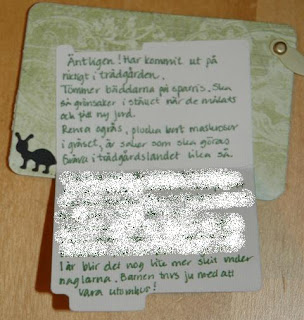 Äntligen! Har kommit ut på
riktigt i trädgården.
Tömmer bäddarna på sparris. Ska
så grönsaker i stället när de målats
och fått ny jord.
Rensa ogräs, plocka bort maskrosor
i gräset, är saker som ska göras
i trädgårdslandet lika så.
I år blir det nog lite mer skit under
naglarna. Barnen trivs ju med att
vara utomhus!